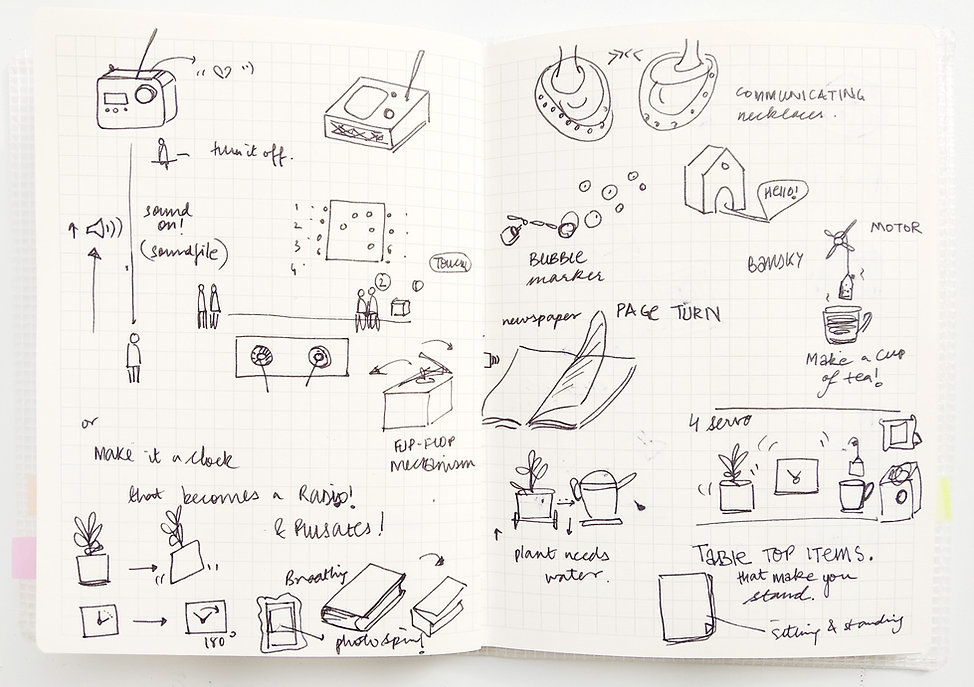 turn it off.
sound
on!
(soundfile)
1
2
3
4
6
6
Touch
2
1
FLIP-FLOP
MECHANISM
or
Make it a clock
that becomes a Radio!
& Pulsates!
Breathing
180°
photo spring!
COMMUNICATING
necklaces.
Hello!
BUBBLE
marker
MOTOR
BANSKY
newspaper
PAGE TURN
Make a cup
of tea!
4 servo
plant needs
water.
TABLE TOP ITEMS.
that make you
stand.
sitting & standing